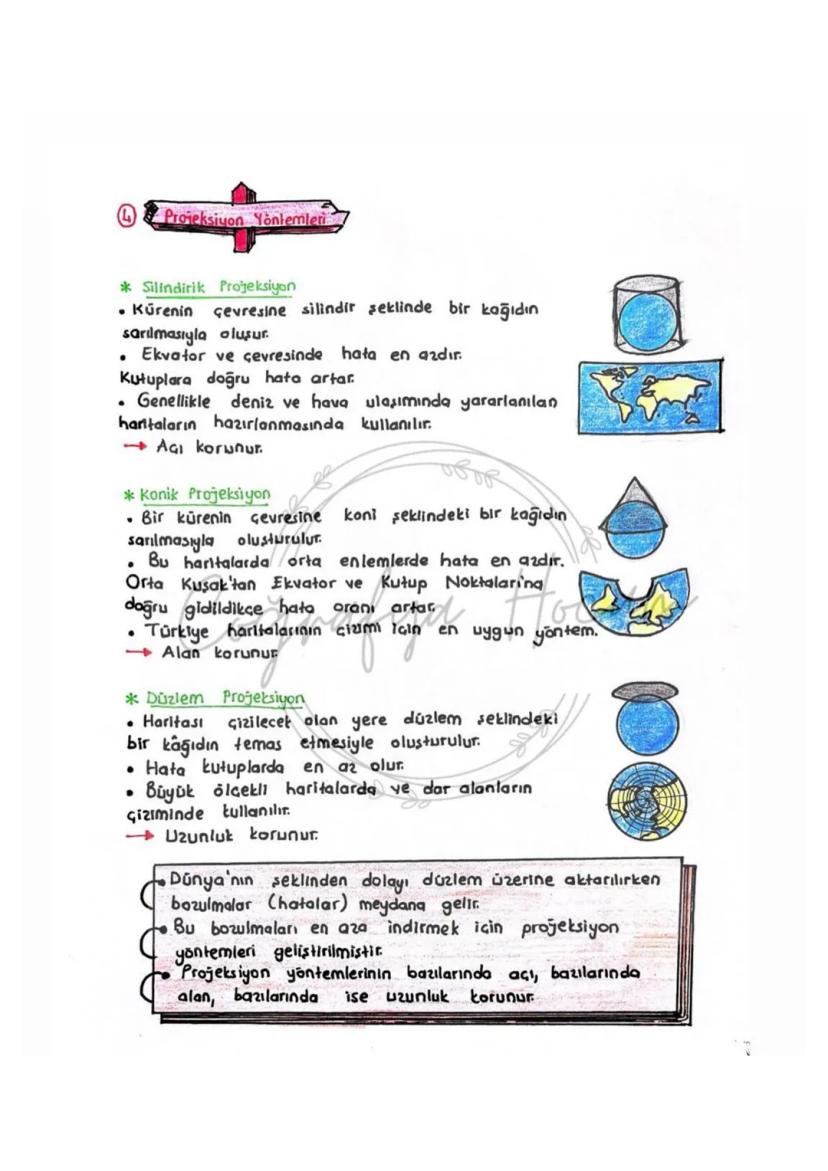 4 Projeksiyon Yöntemleri
* Silindirik Projeksiyon
• Kürenin çevresine silindir şeklinde bir kağıdın
sarılmasıyla oluşur.
• Ekvator ve çevresinde hata en azdır.
Kutuplara doğru hata artar.
• Genellikle deniz ve hava ulaşımında yararlanılan
haritaların hazırlanmasında kullanılır.
→ Açı korunur.
* Konik Projeksiyon
• Bir kürenin çevresine koni şeklindeki bir kağıdın
sarılmasıyla oluşturulur.
• Bu haritalarda orta enlemlerde hata en azdır.
Orta Kuşak'tan Ekvator ve Kutup Noktaları'na
doğru gidildikçe hata oranı artar.
• Türkiye haritalarının çizimi için en uygun yöntem.
→ Alan korunur.
Coğrafya Hocam
* Düzlem Projeksiyon
• Haritası çizilecek olan yere düzlem şeklindeki
bir kâğıdın temas etmesiyle oluşturulur.
• Hata kutuplarda en az olur.
• Büyük ölçekli haritalarda ve dar alanların
çiziminde kullanılır.
→ Uzunluk korunur.
• Dünya'nın şeklinden dolayı düzlem üzerine aktarılırken
bozulmalar (hatalar) meydana gelir.
• Bu bozulmaları en aza indirmek için projeksiyon
yöntemleri geliştirilmiştir.
• Projeksiyon yöntemlerinin bazılarında açı, bazılarında
alan, bazılarında ise uzunluk korunur.